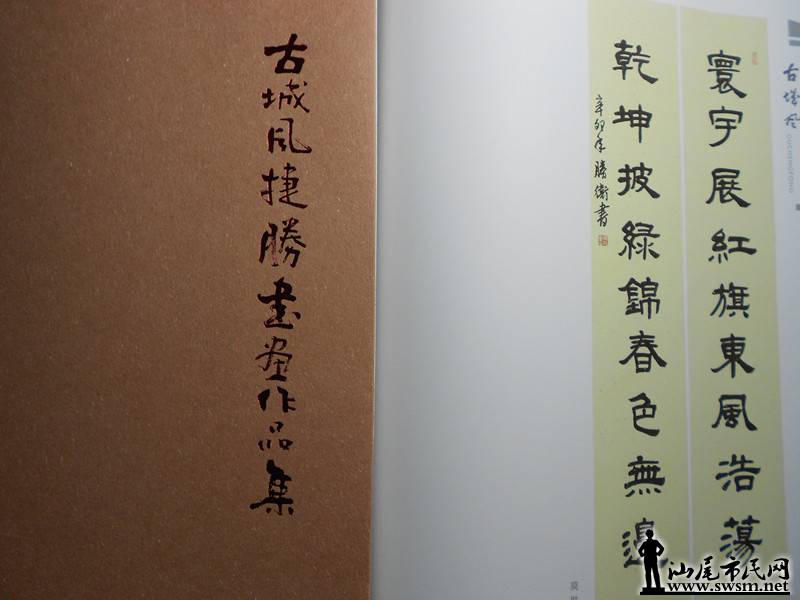 古城风捷勝书画作品集
寰宇展紅旗東風浩蕩
乾坤披绿錦春色無邊
辛卯年勝衛書
古城风
GUCHENGFENG
莫
汕尾市民网
www.swsm.net